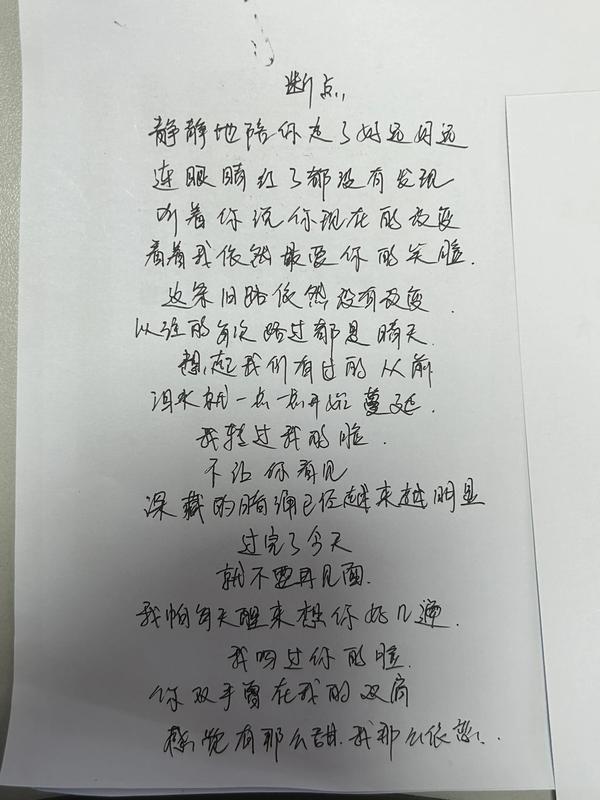 断点..
静静地陪你走了好远好远
连眼睛红了都没有发现
听着你说你现在的改变
看着我依然最爱你的笑脸.
这条旧路依然没有改变.
以往的每次路过都是晴天.
想起我们有过的从前
泪水就一点一点开始蔓延.
我转过我的脸.
不让你看见
深藏的暗涌已经越来越明显
过完了今天
就不要再见面.
我怕每天醒来想你好几遍.
我吻过你的脸.
你双手曾在我的双肩
感觉有那么甜.我那么依恋..